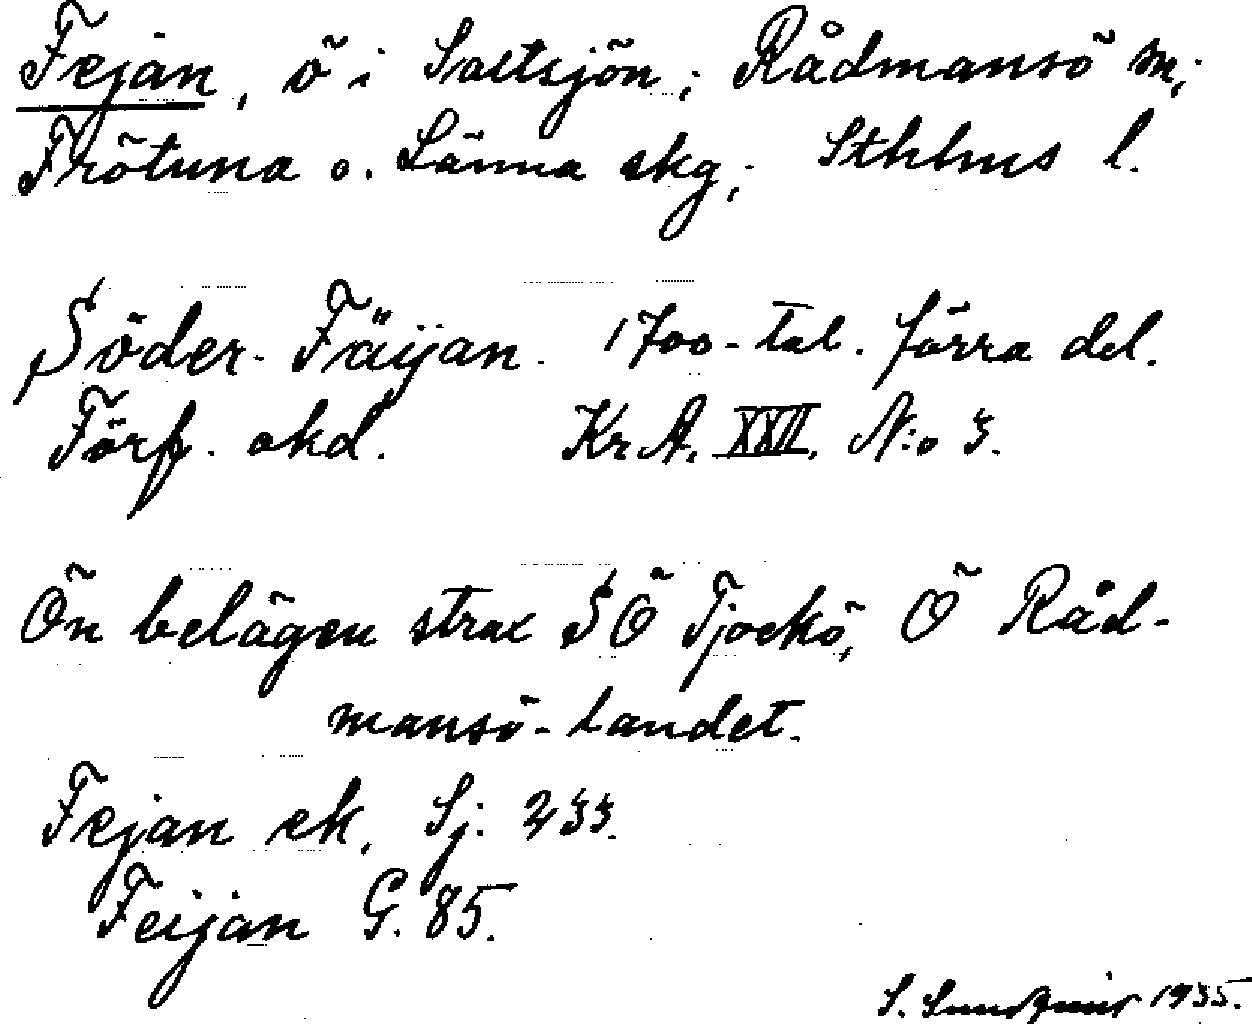 Fejan, ö i Saltsjön; Rådmansö sn;
Frötuna o. Länna skg; Sthlms l.
Söder-Fäijan. 1700-tal. förra del.
Förf. okd. Kr A. XXII. N:o 3.
Ön belägen strax SÖ Tjockö, Ö Råd-
mansö-landet.
Fejan ek. Sj. 233.
Feijan G. 85.
S. Sundqvist 1935.